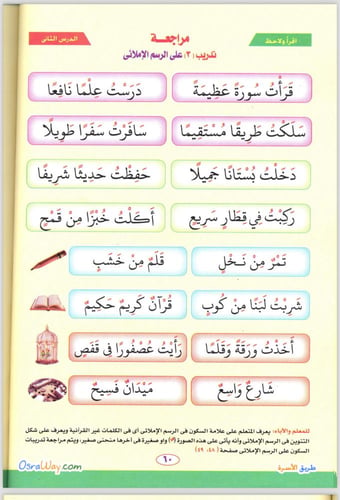 اقرأ ولاحظ
مراجعة
الدرس الثانى
تدريب (٣) على الرسم الإملائى
قَرَأْتُ سُورَةً عَظِيمَةً
دَرَسْتُ عِلْمًا نَافِعًا
سَلَكْتُ طَرِيقًا مُسْتَقِيمًا
سَافَرْتُ سَفَرًا طَوِيلًا
دَخَلْتُ بُسْتَانًا جَمِيلًا
حَفِظْتُ حَدِيثًا شَرِيفًا
رَكِبْتُ فِي قِطَارٍ سَرِيعٍ
أَكَلْتُ خُبْزًا مِنْ قَمْحٍ
تَمْرٌ مِنْ نَخْلٍ
قَلَمٌ مِنْ خَشَبٍ
شَرِبْتُ لَبَنًا مِنْ كُوبٍ
قُرْآنٌ كَرِيمٌ حَكِيمٌ
أَخَذْتُ وَرَقَةً وَقَلَمًا
رَأَيْتُ عُصْفُورًا فِي قَفَصٍ
شَارِعٌ وَاسِعٌ
مَيْدَانٌ فَسِيحٌ
للمعلم والآباء: يعرف المتعلم على علامة السكون فى الرسم الإملائى أى فى الكلمات غير القرآنية ويعرف على شكل
التنوين فى الرسم الإملائى وأنه يأتى على هذه الصورة أو صغيرة فى آخرها منحنى صغير، ويتم مراجعة تدريبات
السكون على الرسم الإملائى صفحة (٤٨، ٤٩)
طريق الأسرة
٦٠
OsraWay.com